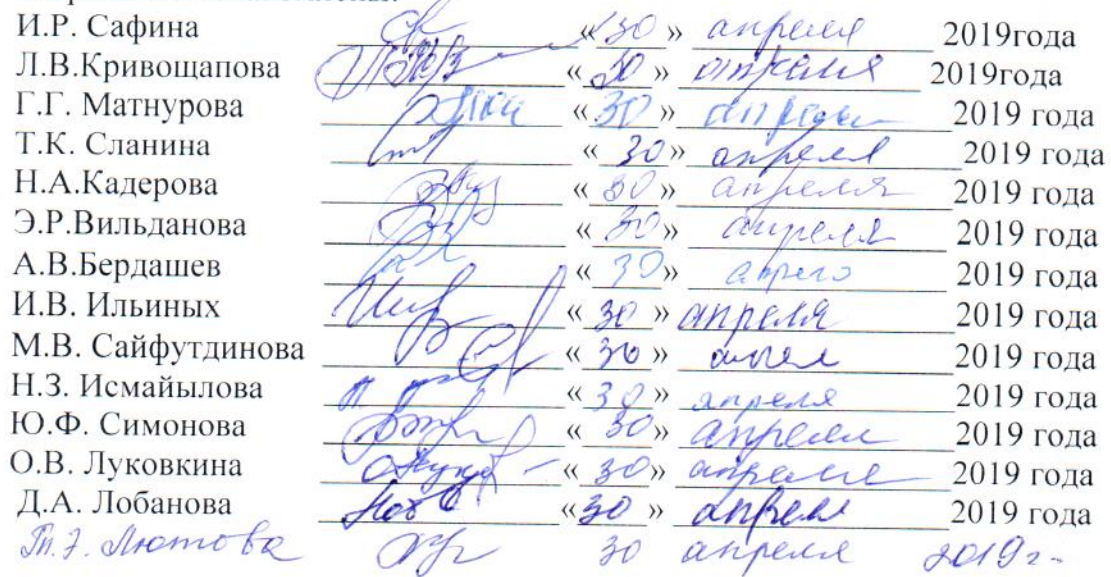 И.Р. Сафина «30» апреля 2019года
Л.В.Кривощапова «30» апреля 2019года
Г.Г. Матнурова «30» апреля 2019 года
Т.К. Сланина «30» апреля 2019 года
Н.А.Кадерова «30» апреля 2019 года
Э.Р.Вильданова «30» апреля 2019 года
А.В.Бердашев «30» 2019 года
И.В. Ильиных «30» апреля 2019 года
М.В. Сайфутдинова «30» 2019 года
Н.З. Исмайылова «30» апреля 2019 года
Ю.Ф. Симонова «30» апреля 2019 года
О.В. Луковкина «30» апреля 2019 года
Д.А. Лобанова «30» апреля 2019 года
Т.З. Лютова 30 апреля 2019 г.